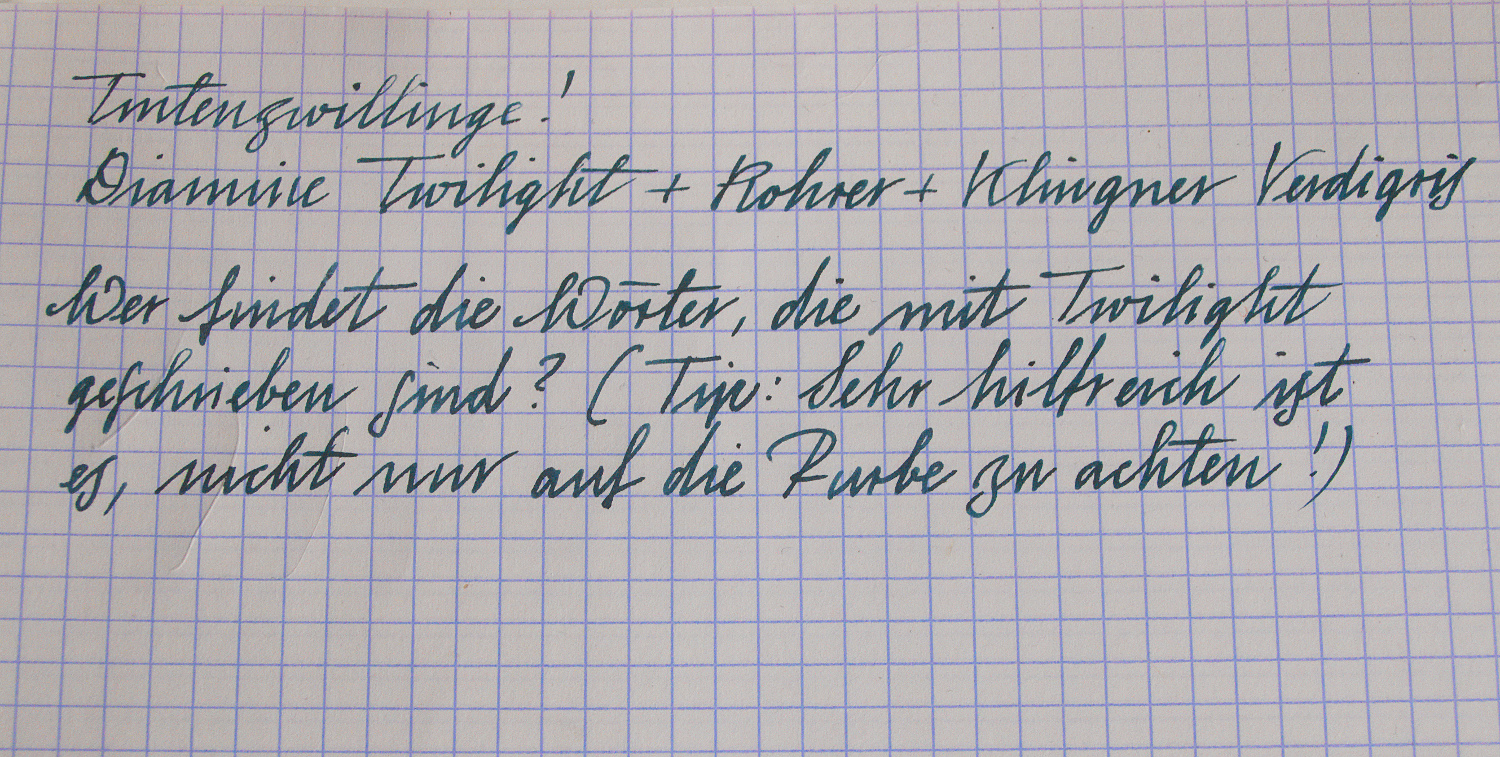 Tintenzwillinge!
Diamine Twilight + Rohrer + Klingner Verdigris
Wer findet die Wörter, die mit Twilight
geschrieben sind? (Tip: Sehr hilfreich ist
es, nicht nur auf die Farbe zu achten!)